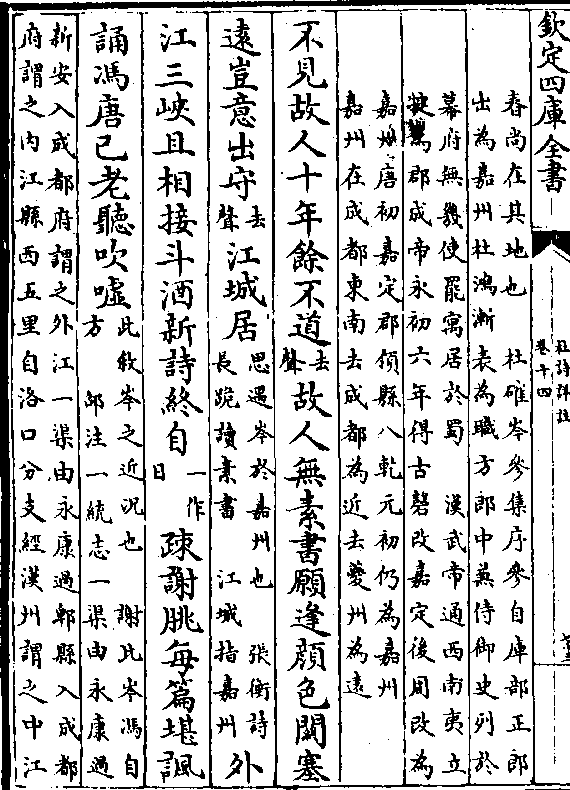 欽定四庫全書
杜詩詳註
卷十四
春尚在其地也　杜確岑參集序參自庫部正郎
出為嘉州杜鴻漸表為職方郎中兼侍御史列於
幕府無幾使罷寓居於蜀　漢武帝通西南夷立
犍為郡成帝永初六年得古磬改嘉定後周改為
嘉州唐初嘉定郡領縣八乾元初仍為嘉州
嘉州在成都東南去成都為近去夔州為遠
不見故人十年餘不道去聲故人無素書願逢顔色關塞
遠豈意出守去聲江城居思遇岑於嘉州也　張衡詩長跪讀素書　江城指嘉州外
江三峽且相接斗酒新詩終自一作日疎謝朓每篇堪諷
誦馮唐已老聽吹嘘此敘岑之近況也　謝比岑馮自方　邱注一統志一渠由永康過
新安入成都府謂之外江一渠由永康過郫縣入成都
府謂之内江縣西五里自洛口分支經漢州謂之中江